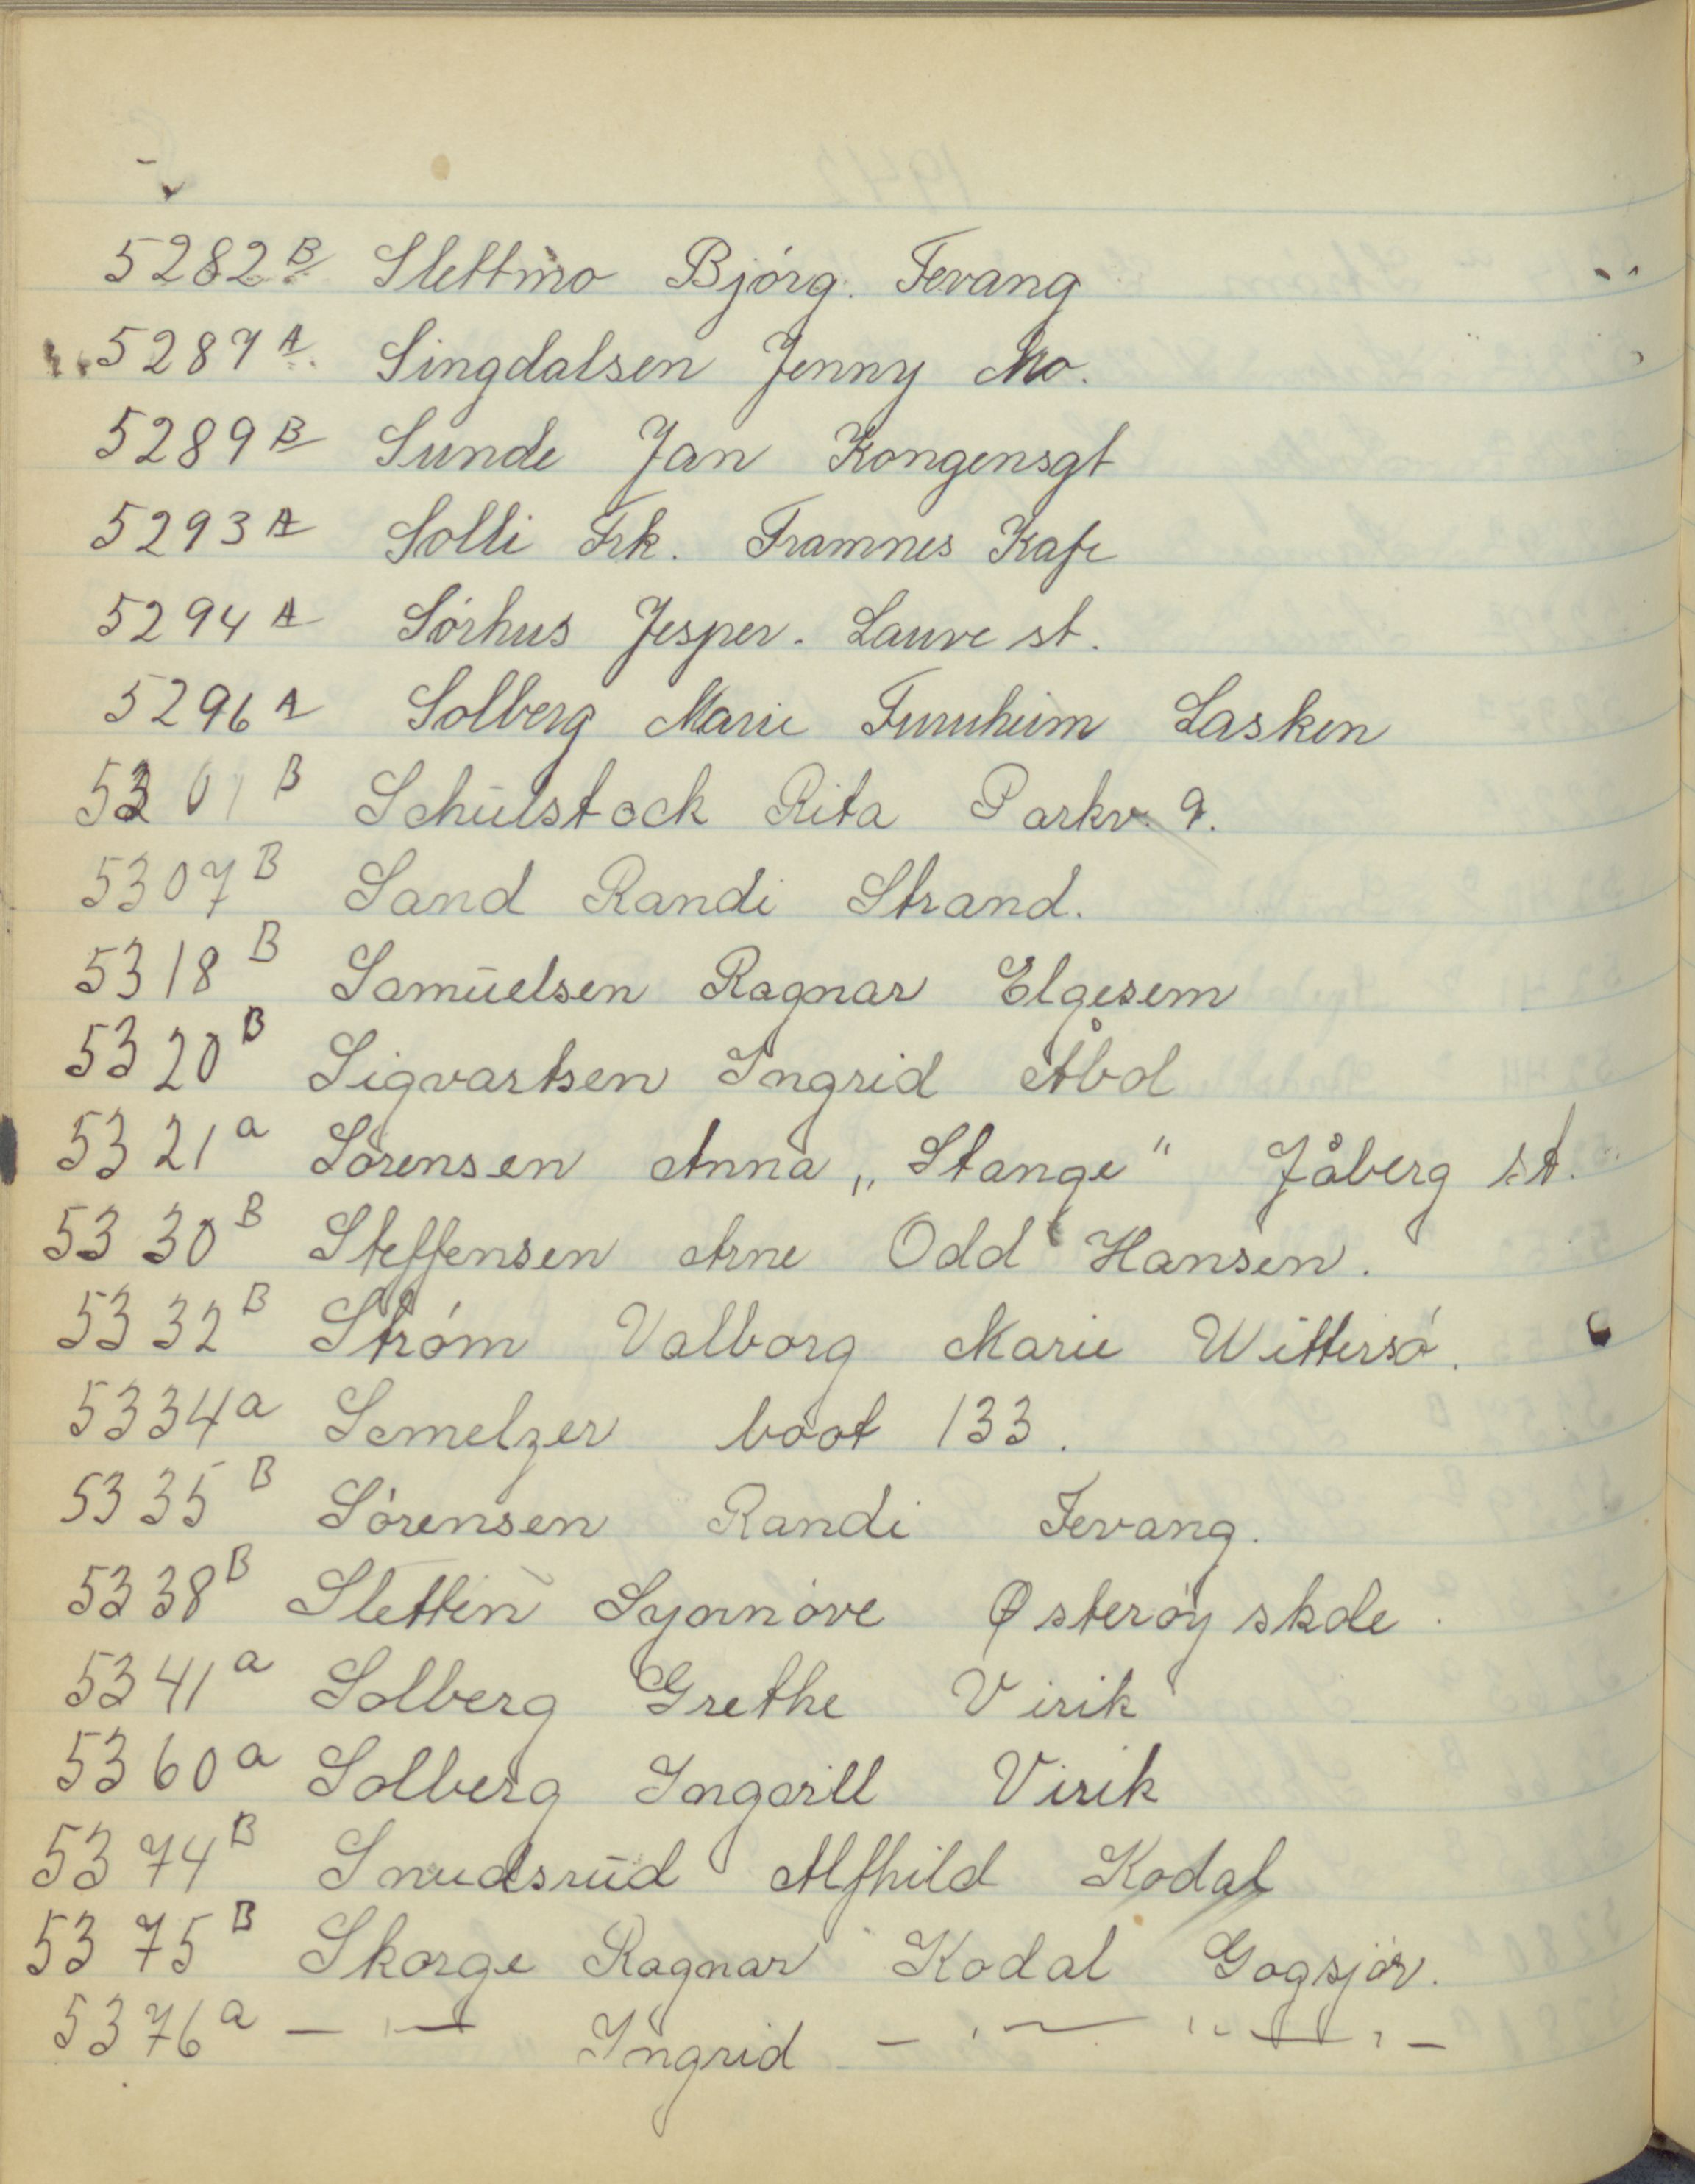 5282 B Slettmo Bjórg. Fevang
5287 A. Singdalsen Jenny Mo.
5289 B Sunde Jan Kongensgt
5293 A Solli Frk. Framnes Kafe
5294 A Sórhus Jesper. Lauve st.
5296 A Solberg Marie Furuheim Lasken
5301 B Schulstock Rita Parkv. 9.
5307 B Sand Randi Strand.
5318 B Samuelsen Ragnar Elgesem
5320 B Sigvartsen Ingrid Åbol
5321 a Sórensen Anna „Stange" Jåberg st.
5330 B Steffensen Arne Odd Hansen.
5332 B Stróm Valborg Marie Wittersó.
5334 a Semelzer boot 133.
5335 B Sórensen Randi Fevang.
5338 B Slettin Synnóve Østeróy skole.
5341 a Solberg Grethe Virik
5360 a Solberg Ingerill Virik
5374 B Snudsrud Alfhild Kodal
5375 B Skorge Ragnar Kodal Gogsjór.
5376 a — " — Ingrid — " — " — " —